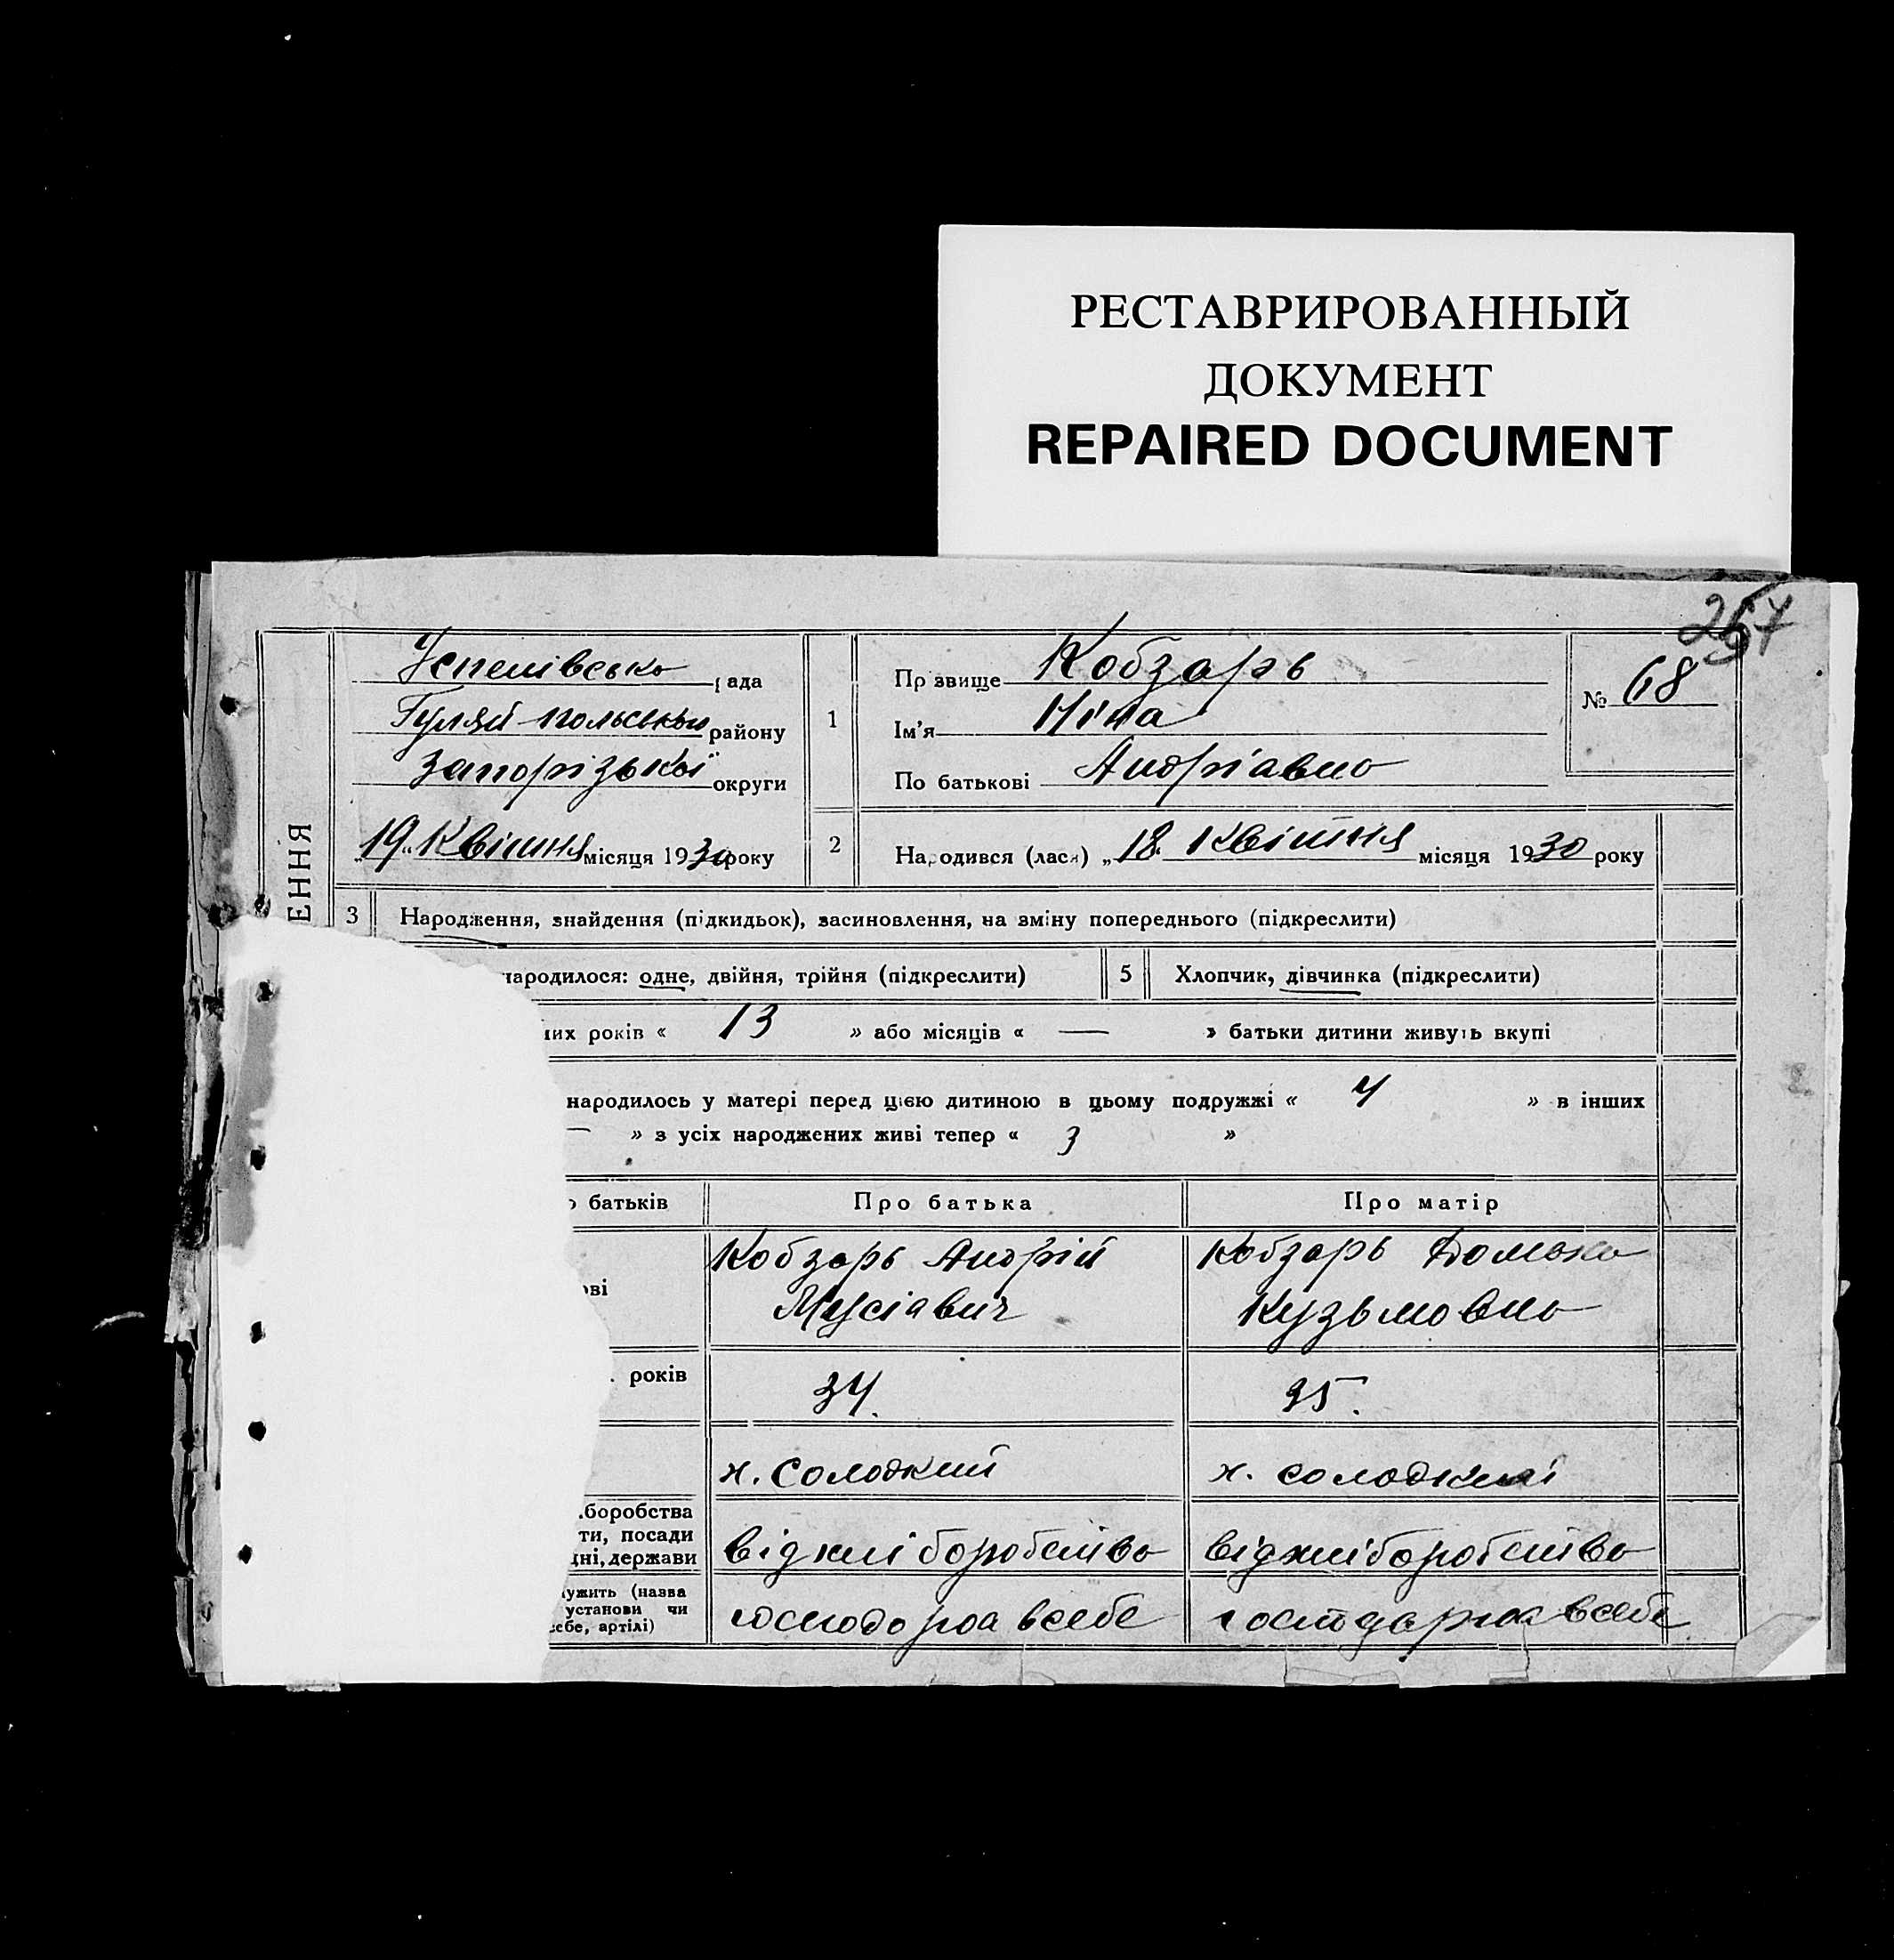 РЕСТАВРИРОВАННЫЙ
ДОКУМЕНТ
REPAIRED DOCUMENT
257
Успенівсько рада
Гуляй-польськой району
Запорізької округи
„19“ Квітня місяця 1930 року
ЕННЯ
1
Прізвище Кобзарь
Ім'я Ніна
По батькові Андріавно
№ 68
2
Народився (лася) „18“ Квітня місяця 1930 року
3 Народження, знайдення (підкидьок), засиновлення, на зміну попереднього (підкреслити)
народилося: одне, двійня, трійня (підкреслити)
5 Хлопчик, дівчинка (підкреслити)
них років « 13 » або місяців « — » батьки дитини живуть вкупі
народилось у матері перед цією дитиною в цьому подружжі « 4 » в інших
— » з усіх народжених живі тепер « 3 »
о батьків
Про батька
Про матір
ові
Кобзарь Андрій
Мусіавич
Кобзарь Домаха
Кузьмовно
років
34.
35.
х. Солодкий
х. солодкий
боробства
ти, посади
дні, держави
відхліборобство
відхліборобство
ужить (назва
установи чи
себе, артілі)
господороа всебе
господароа всебе